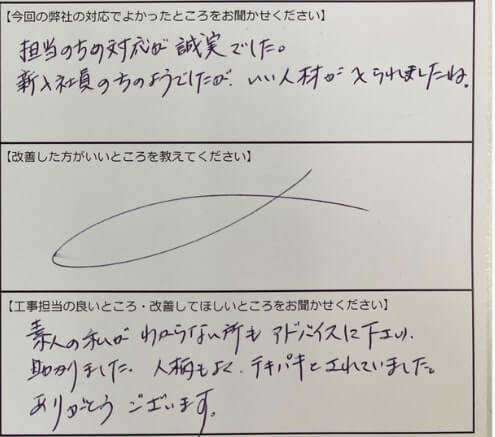 【今回の弊社の対応でよかったところをお聞かせください】
担当の方の対応が誠実でした。
新入社員の方のようでしたが、いい人材が入られましたね。
【改善した方がいいところを教えてください】
【工事担当の良いところ・改善してほしいところをお聞かせください】
素人の私がわからない所もアドバイス下さり、
助かりました。人柄もよく、テキパキとされていました。
ありがとうございます。